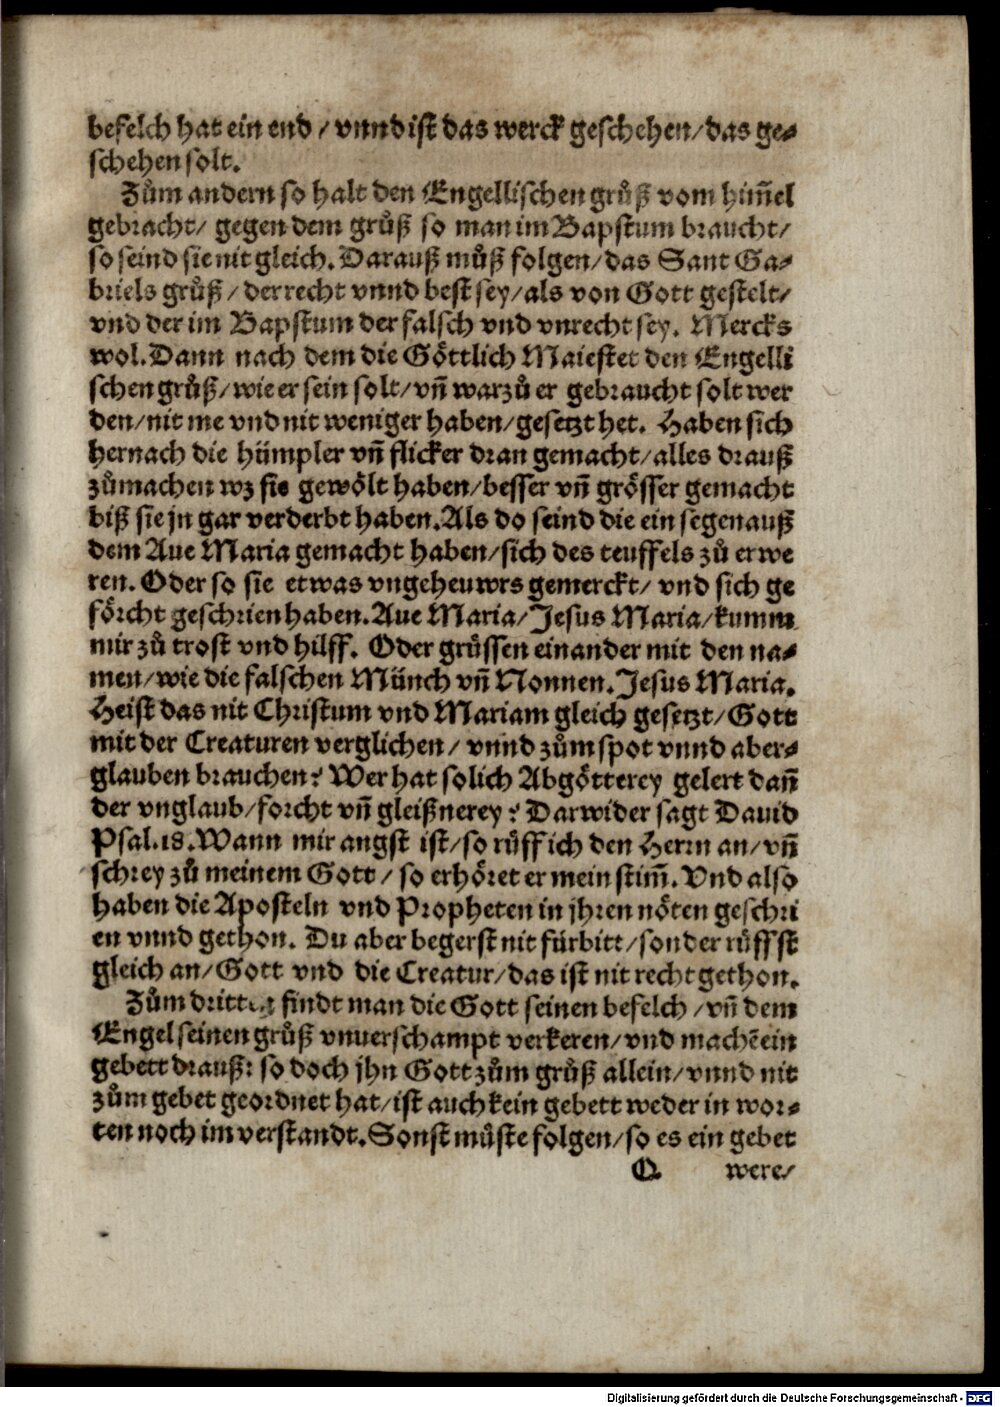 befelch hat ein end / vnnd ist das werck geschehen / das ge⸗
schehen solt.
Zům andern so halt den Engellischen grůß vom him̃el
gebracht / gegen dem grůß so man im Bapstum braucht /
so seind sie nit gleich. Darauß můß folgen / das Sant Ga⸗
briels grůß / der recht vnnd best sey / als von Gott gestelt /
vnd der im Bapstum der falsch vnd vnrecht sey. Mercks
wol. Dann nach dem die Göttlich Maiestet den Engelli
schen grůß / wie er sein solt / vñ warzů er gebraucht solt wer
den / nit me vnd nit weniger haben / gesetzt het. Haben sich
hernach die hümpler vñ flicker dran gemacht / alles drauß
zůmachen wz sie gewölt haben / besser vñ grösser gemacht
biß sie jn gar verderbt haben. Als do seind die ein segen auß
dem Aue Maria gemacht haben / sich des teuffels zů erwe
ren. Oder so sie etwas vngeheuwrs gemerckt / vnd sich ge
förcht geschrien haben. Aue Maria / Jesus Maria / kumm
mir zů trost vnd hilff. Oder grüssen einander mit den na⸗
men / wie die falschen Münch vñ Nonnen. Jesus Maria.
Heist das nit Christum vnd Mariam gleich gesetzt / Gott
mit der Creaturen verglichen / vnnd zům spot vnnd aber⸗
glauben brauchen? Wer hat solich Abgötterey gelert dañ
der vnglaub / forcht vñ gleißnerey? Darwider sagt Dauid
Psal. 18. Wann mir angst ist / so růff ich den Herrn an / vñ
schrey zů meinem Gott / so erhöret er mein stim̃. Vnd also
haben die Aposteln vnd Propheten in jhren nöten geschri
en vnnd gethon. Du aber begerst nit fürbitt / sonder růffst
gleich an / Gott vnd die Creatur / das ist nit recht gethon.
Zům dritten findt man die Gott seinen befelch / vñ dem
Engel seinen grůß vnuerschampt verkeren / vnd machẽ ein
gebett drauß: so doch jhn Gott zům grůß allein / vnnd nit
zům gebet geordnet hat / ist auch kein gebett weder in wor⸗
ten noch im verstandt. Sonst můste folgen / so es ein gebet
Q were /
Digitalisierung gefördert durch die Deutsche Forschungsgemeinschaft - DFG